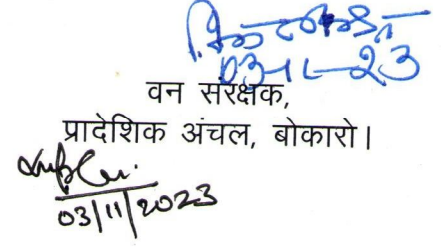 03-11-23
वन संरक्षक,
प्रादेशिक अंचल, बोकारो।
03/11/2023